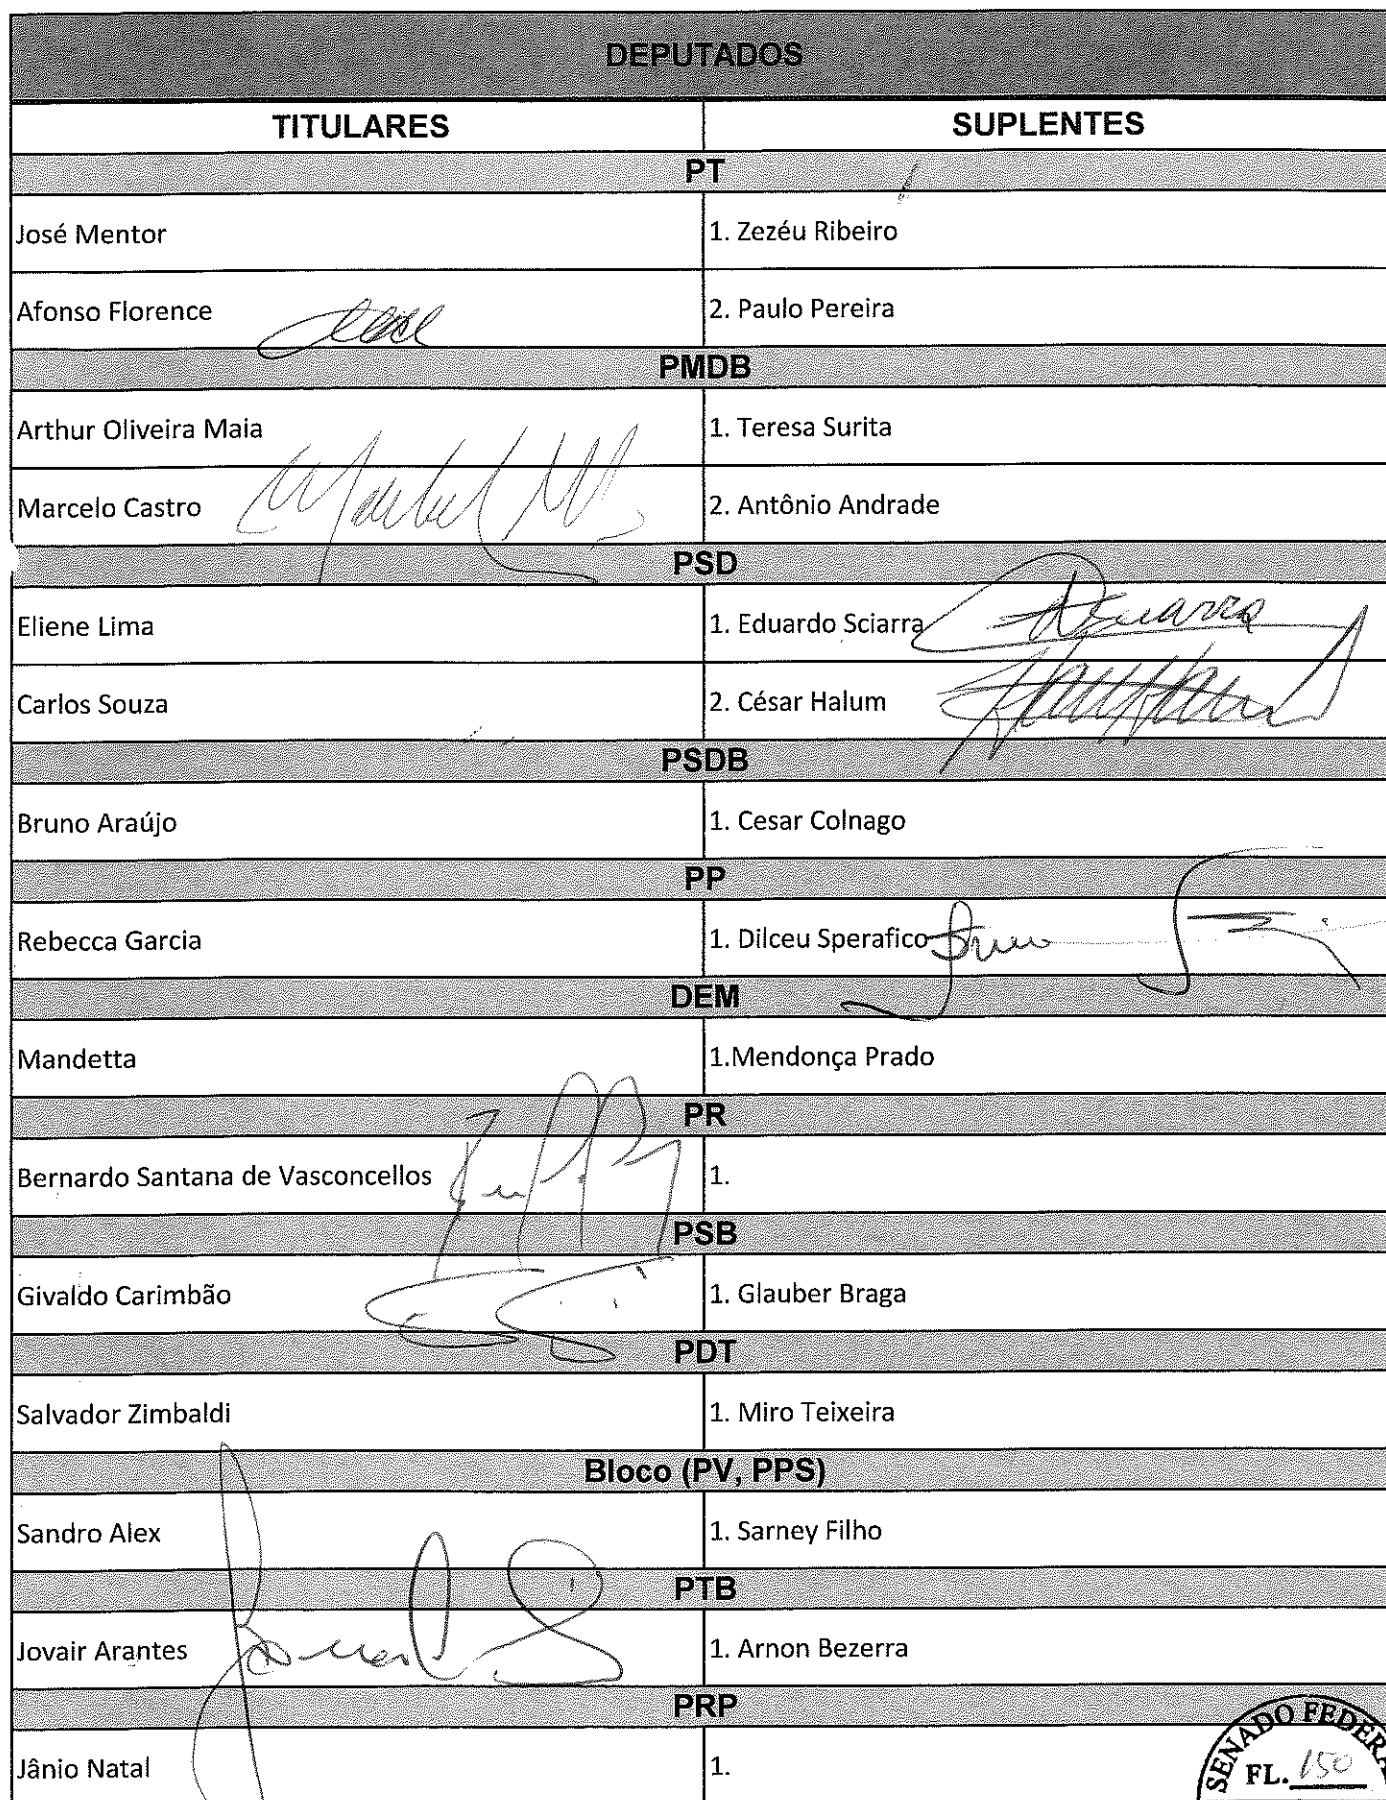 DEPUTADOS
TITULARES SUPLENTES
PT
José Mentor 1. Zezéu Ribeiro
Afonso Florence 2. Paulo Pereira
PMDB
Arthur Oliveira Maia 1. Teresa Surita
Marcelo Castro 2. Antônio Andrade
PSD
Eliene Lima 1. Eduardo Sciarra
Carlos Souza 2. César Halum
PSDB
Bruno Araújo 1. Cesar Colnago
PP
Rebecca Garcia 1. Dilceu Sperafico
DEM
Mandetta 1.Mendonça Prado
PR
Bernardo Santana de Vasconcellos 1.
PSB
Givaldo Carimbão 1. Glauber Braga
PDT
Salvador Zimbaldi 1. Miro Teixeira
Bloco (PV, PPS)
Sandro Alex 1. Sarney Filho
PTB
Jovair Arantes 1. Arnon Bezerra
PRP
Jânio Natal 1.
SENADO FEDERA
FL. 150